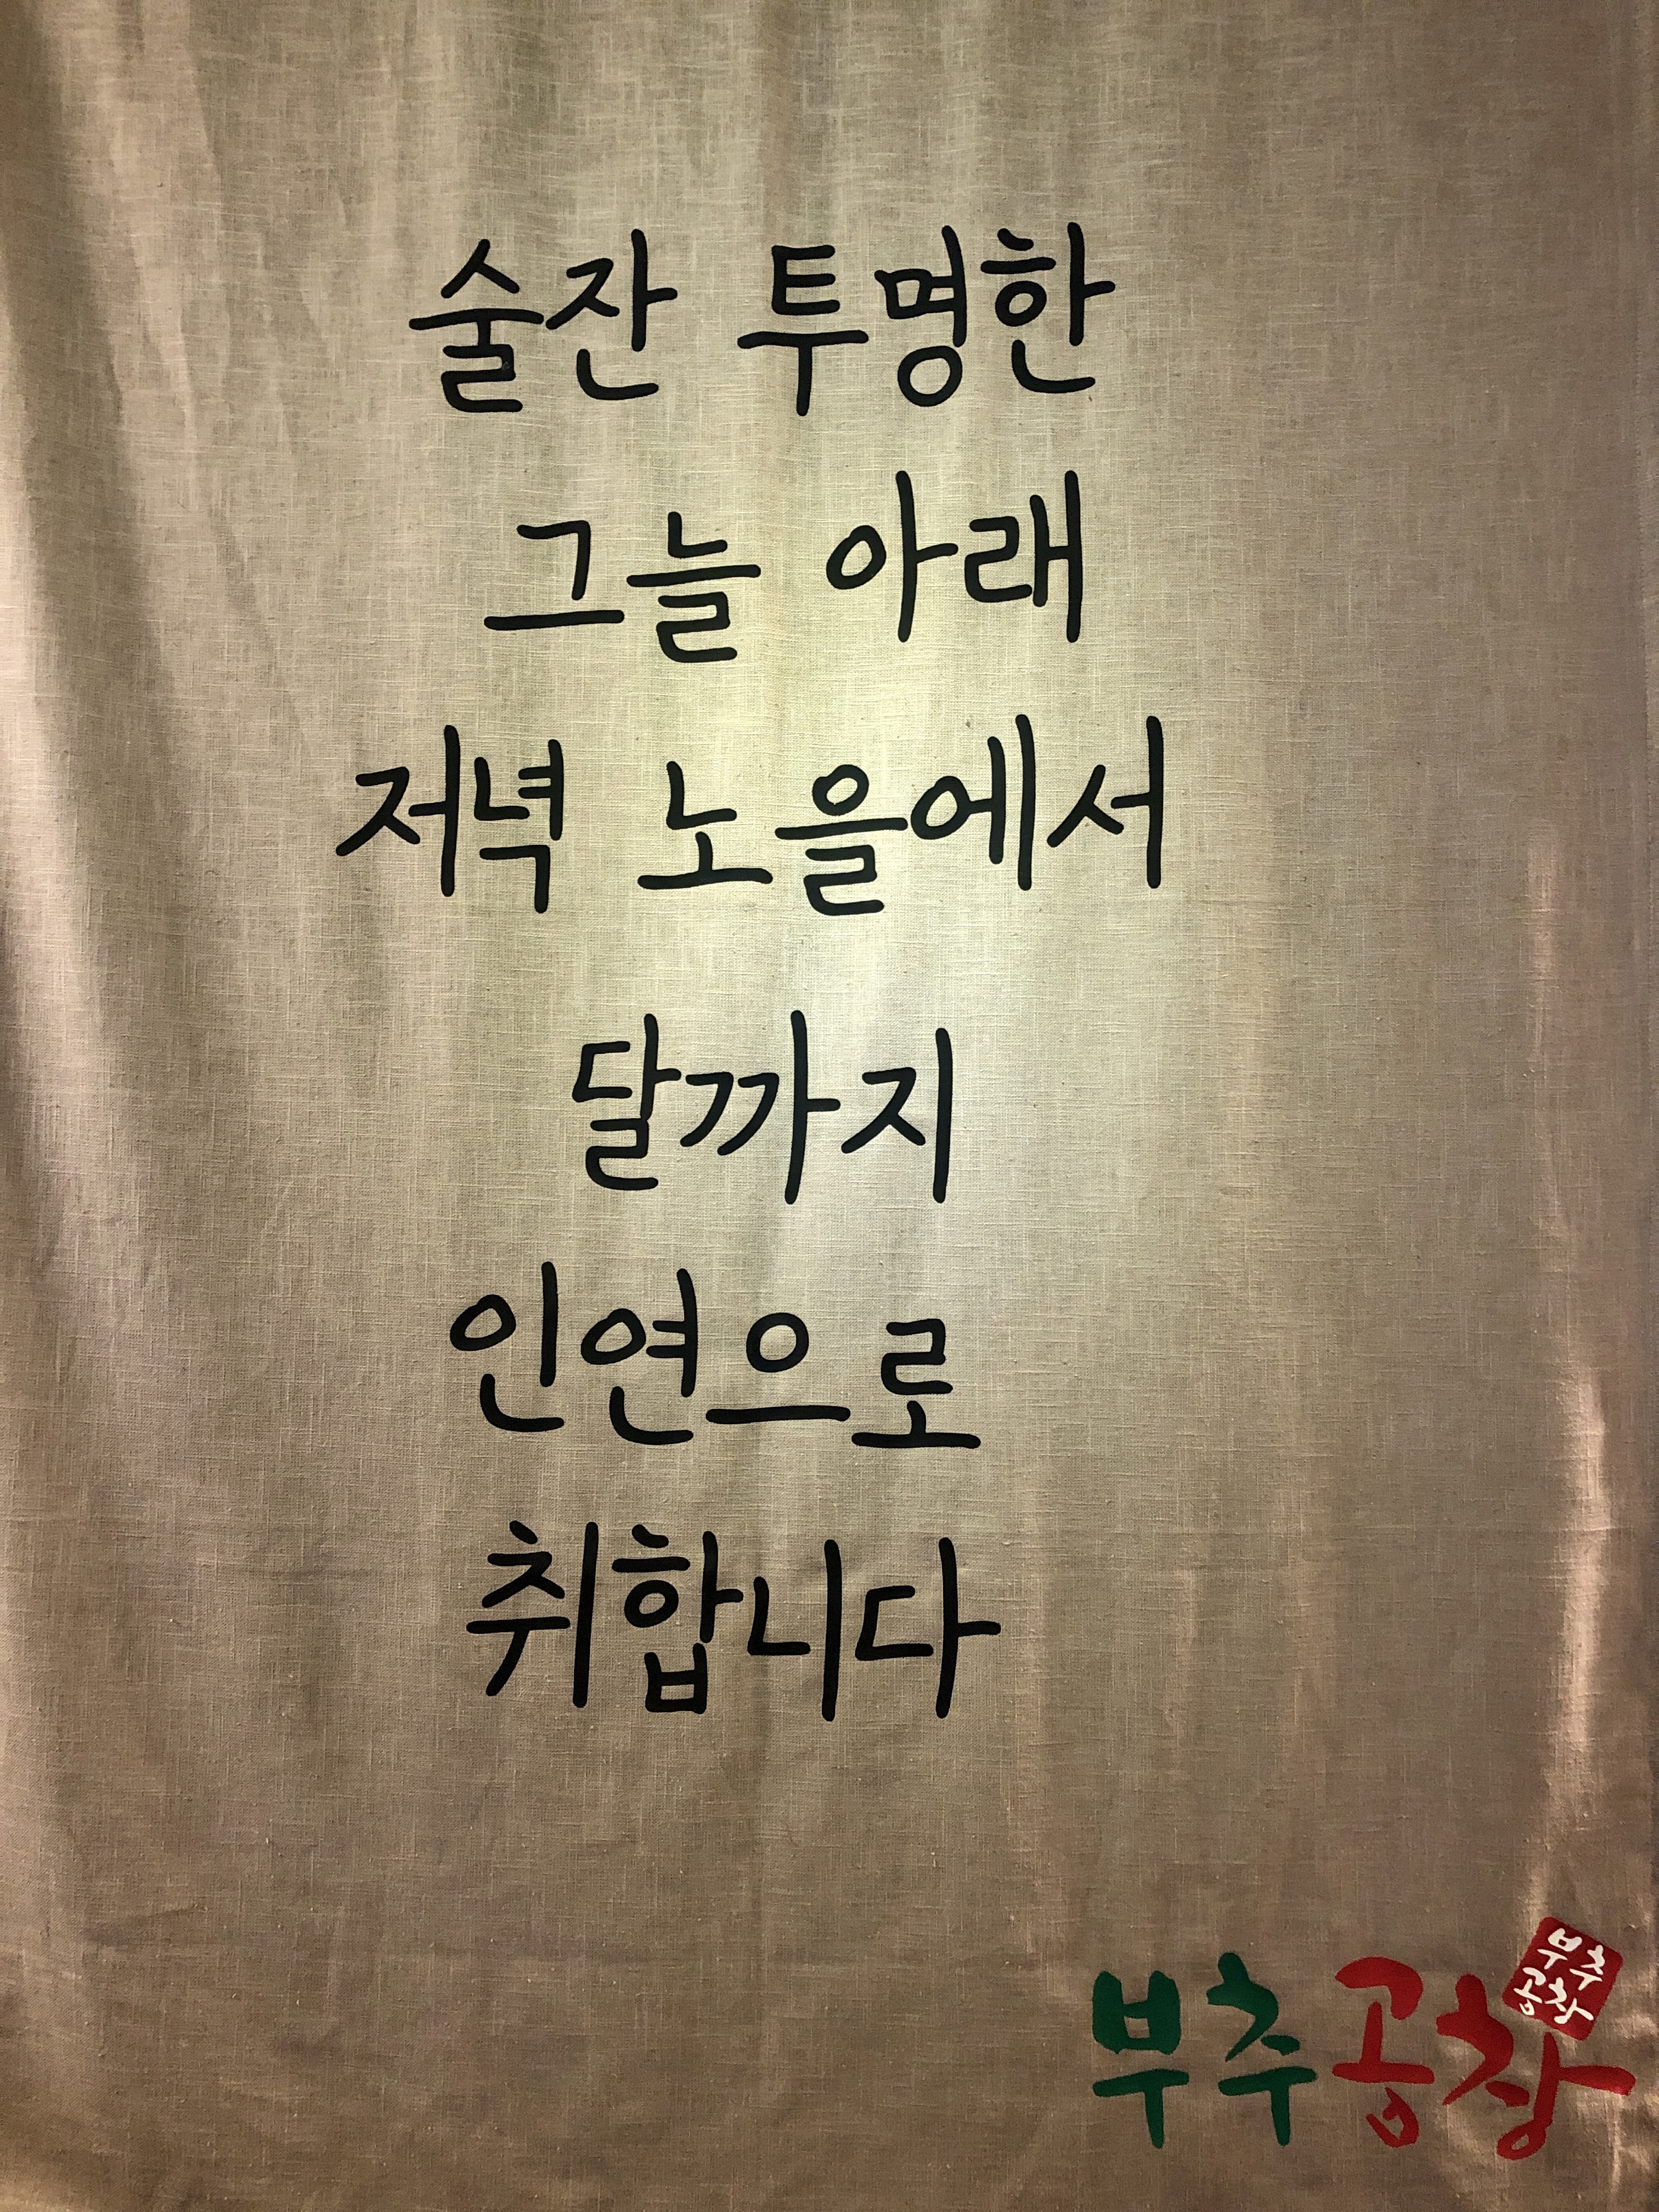 술잔 투명한
그늘 아래
저녁 노을에서
달까지
인연으로
취합니다
부추
공창
부추공창